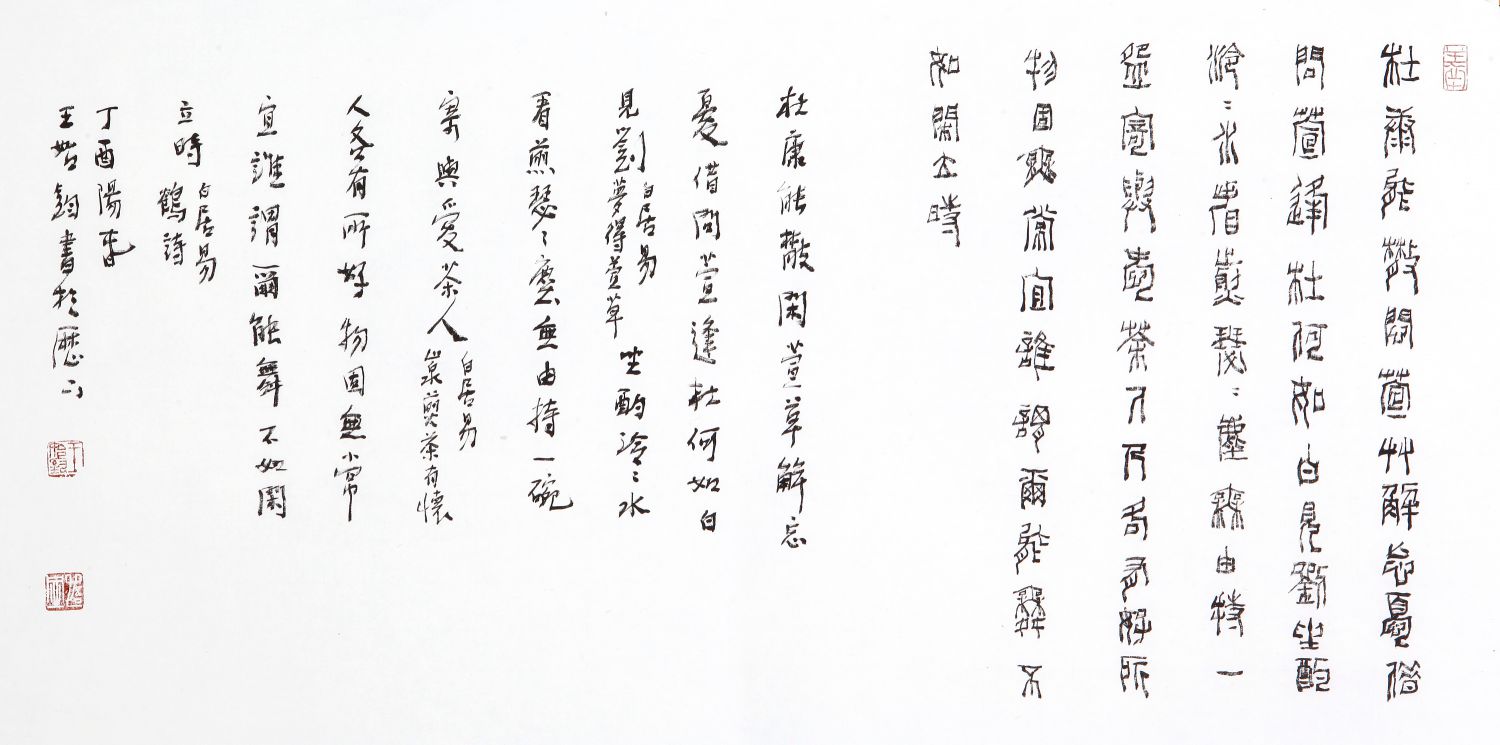 杜康能散閑萱艸解忘憂借
問萱逢杜何如白見劉坐酌
泠〻水看煎瑟〻塵無由持一
盌寄與愛茶人人各有好所
物固無常宜誰謂爾能舞不
如閑立時
杜康能散閑萱草解忘
憂借問萱逢杜何如白
見劉
白居易
夢得萱草
坐酌泠〻水
看煎瑟〻塵無由持一碗
寄與愛茶人
白居易
山泉煎茶有懷
人各有所好物固無小常
宜誰謂爾能舞不如閑
立時
白居易
鶴詩
丁酉陽春
王 書於歷下